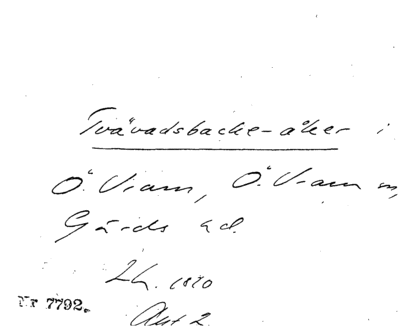 Tvåvadsbacke-åker i
Ö. Vram, Ö. Vram sn,
Gärds hd.
Lh. 1820
Nr 7792.
Akt 2